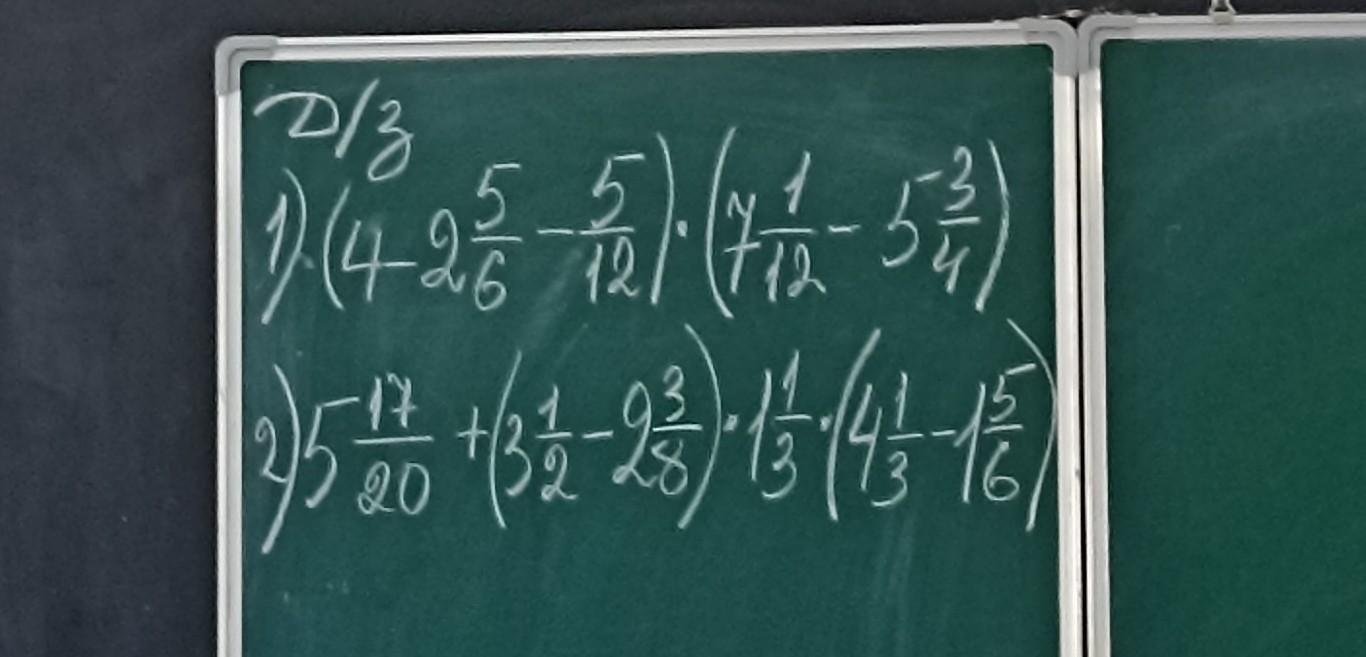 Д/з
1) (4 - 2 5/6 - 5/12) · (7 1/12 - 5 3/4)
2) 5 17/20 + (3 1/2 - 2 3/8) · 1 1/3 · (4 1/3 - 1 5/6)